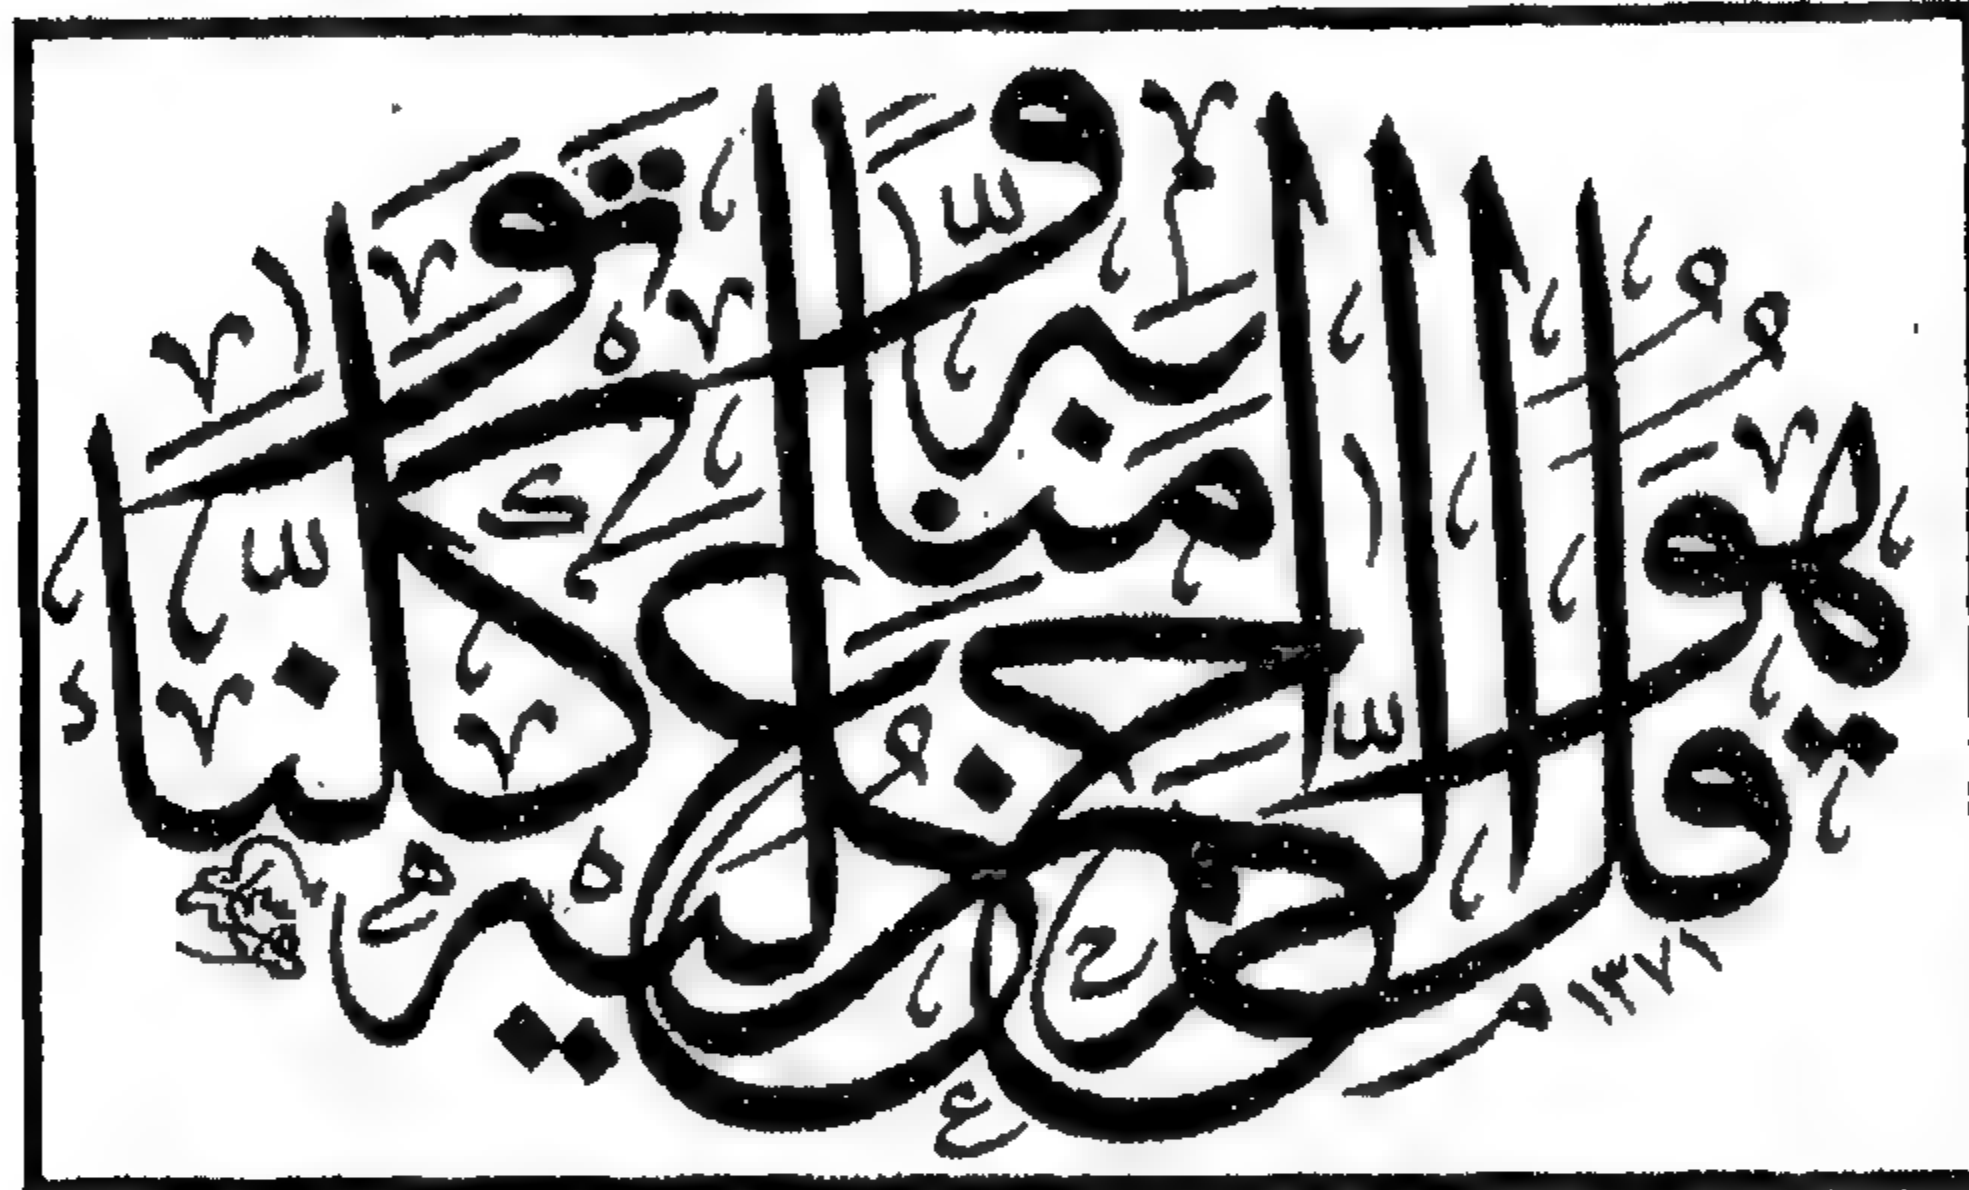 قل هو الرحمن امنا به وعليه توكلنا
١٣٧١